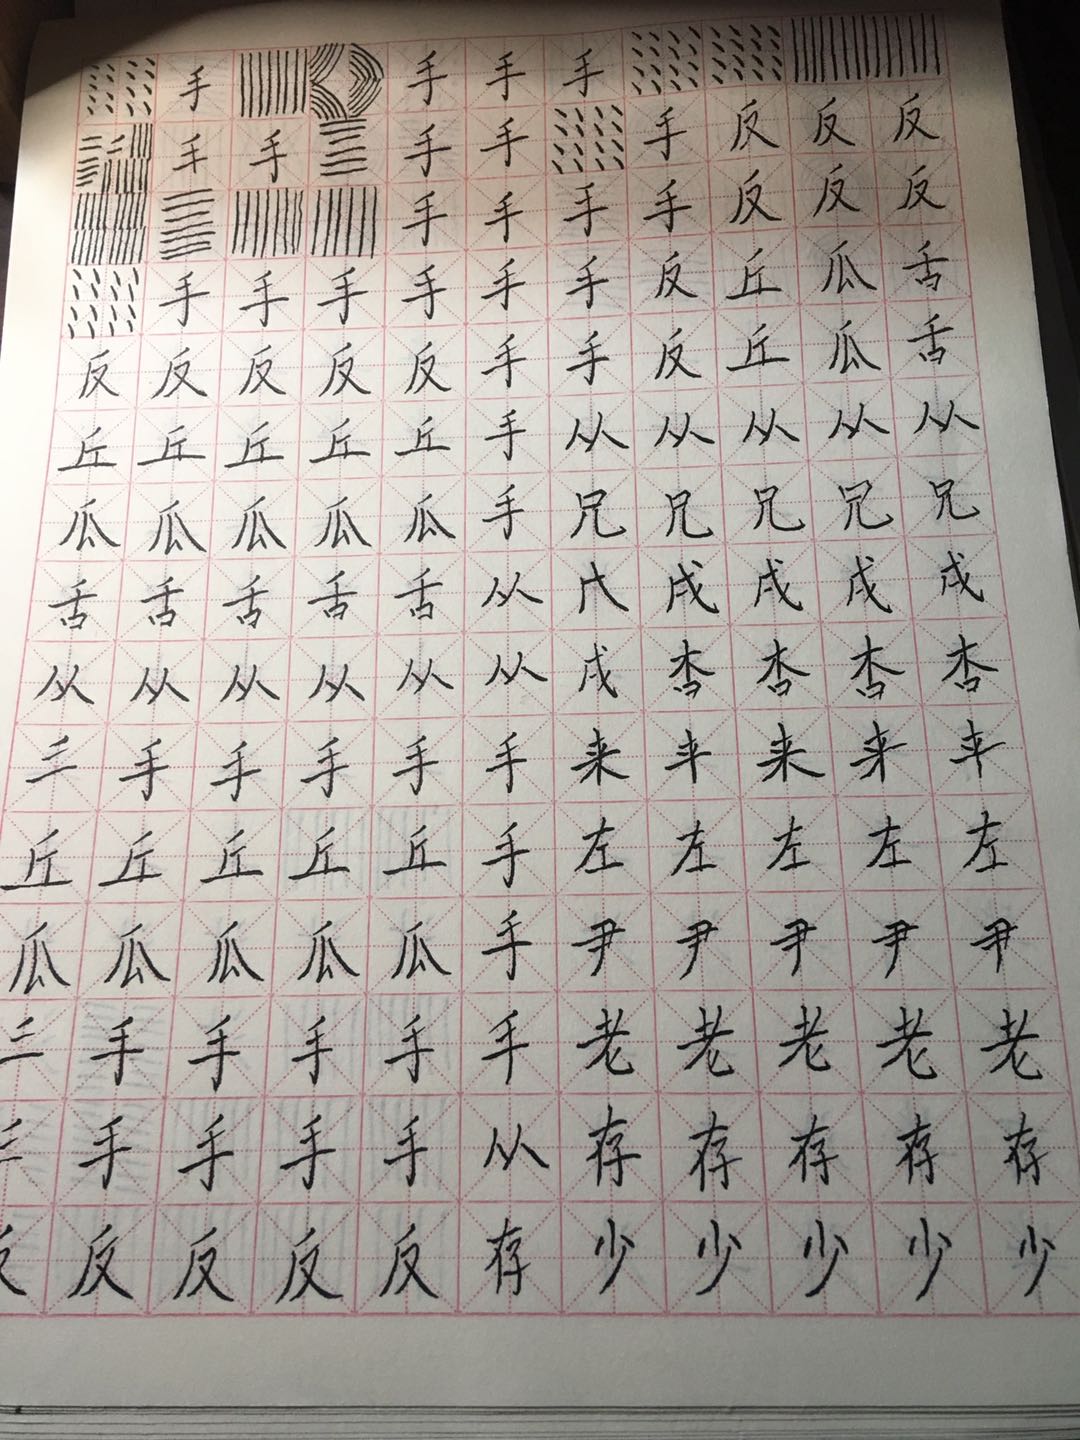 手 手 手 手
手 手 手 手 手 反 反 反
手 手 手 手 反 反 反
手 手 手 手 手 手 反 丘 瓜 舌
反 反 反 反 反 手 手 反 丘 瓜 舌
丘 丘 丘 丘 丘 手 从 从 从 从 从
瓜 瓜 瓜 瓜 瓜 手 兄 兄 兄 兄 兄
舌 舌 舌 舌 舌 从 戌 戌 戌 戌
从 从 从 从 从 从 戌 杏 杏 杏 杏
三 手 手 手 手 手 来 来
丘 丘 丘 丘 丘 手 左 左 左 左 左
瓜 瓜 瓜 瓜 瓜 手 尹 尹 尹 尹 尹
三 手 手 手 手 手 老 老 老 老 老
手 手 手 手 从 存 存 存 存 存
反 反 反 反 反 存 少 少 少 少 少